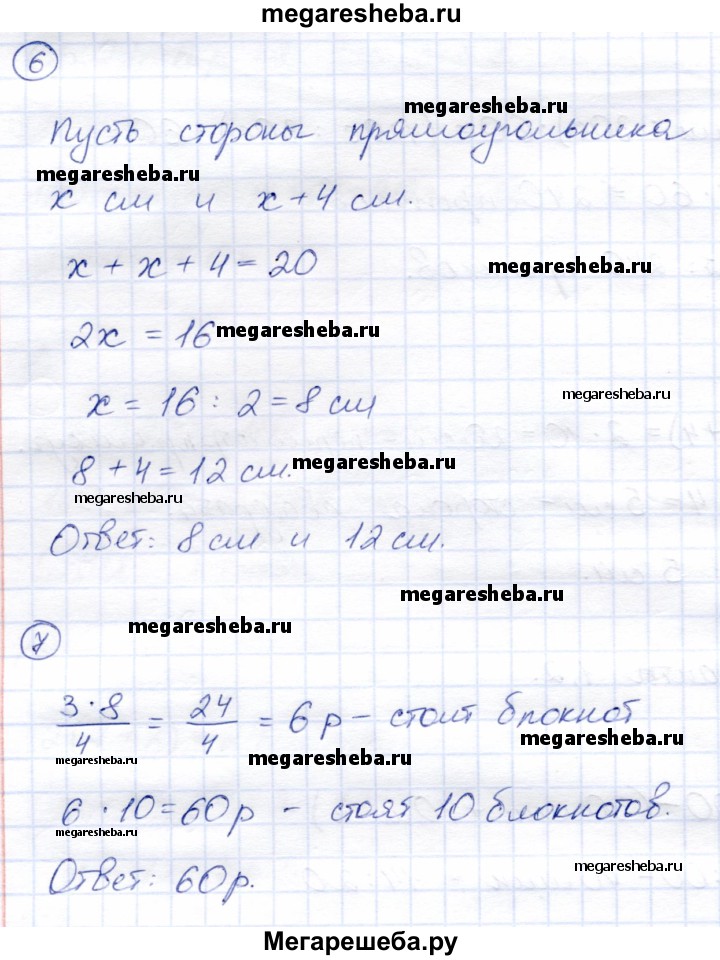 megaresheba.ru
6
megaresheba.ru
Пусть стороны прямоугольника
megaresheba.ru
x см и x + 4 см.
x + x + 4 = 20
megaresheba.ru
2x = 16
megaresheba.ru
megaresheba.ru
x = 16 : 2 = 8 см
8 + 4 = 12 см.
megaresheba.ru
megaresheba.ru
Ответ: 8 см и 12 см.
megaresheba.ru
megaresheba.ru
7
3·8/4 = 24/4 = 6 р – стоит блокнот
megaresheba.ru
megaresheba.ru
megaresheba.ru
6 · 10 = 60 р – стоят 10 блокнотов.
megaresheba.ru
megaresheba.ru
Ответ: 60 р.
Мегарешеба.ру